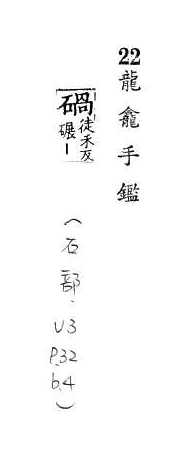 22龍龕手鑑
碢徒禾反碾—
（石部．V3 P.32 b.4）